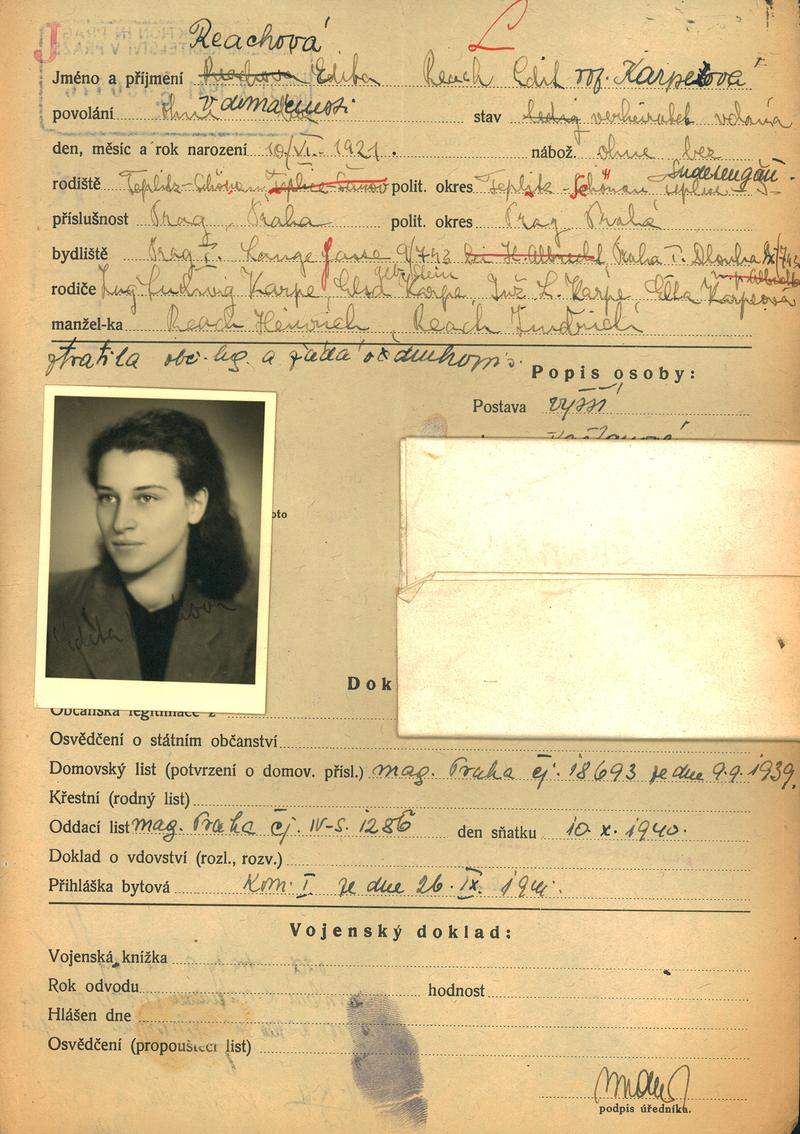 J
L
Reachová
Jméno a příjmení Edita Reach Edit roz. Karpeová
povolání ohne v domácnosti stav ledig verheiratet vdaná
den, měsíc a rok narození 10/VI. 1921. nábož. ohne bez
rodiště Teplitz-Schönau Teplice-Šanov polit. okres Teplitz-Schönau Teplice Š. Sudetengau
příslušnost Prag, Praha polit. okres Prag Praha
bydliště Prag I. Lange Gasse 9/743 Praha I. Dlouhá
rodiče Ing Ludwig Karpe, Elsa Karpe, Inž. L. Karpe, Elsa Karpeová
manžel-ka Reach Heinrich, Reach Jindřich
ztratila obč. leg. a žádá o druhopis.
Popis osoby:
Postava vyšší
oto
Dok
Občanská legitimace č
Osvědčení o státním občanství
Domovský list (potvrzení o domov. přísl.) mag. Praha čj. 18693 ze dne 9.9.1939.
Křestní (rodný list)
Oddací list mag. Praha čj. IV-S. 1286 den sňatku 10. X. 1940.
Doklad o vdovství (rozl., rozv.)
Přihláška bytová Kom. I ze dne 26. IX.
Vojenský doklad:
Vojenská knížka
Rok odvodu hodnost
Hlášen dne
Osvědčení (propouštěcí list)
podpis úředníka.